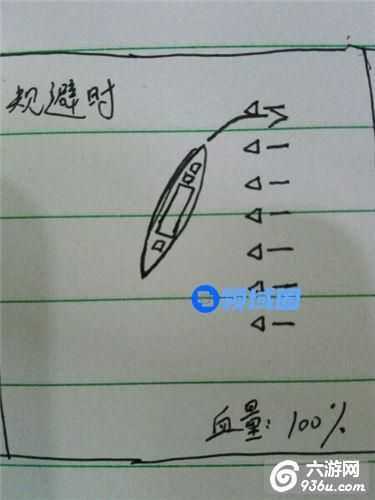 规避时
血量：100%
六游网
936u.com